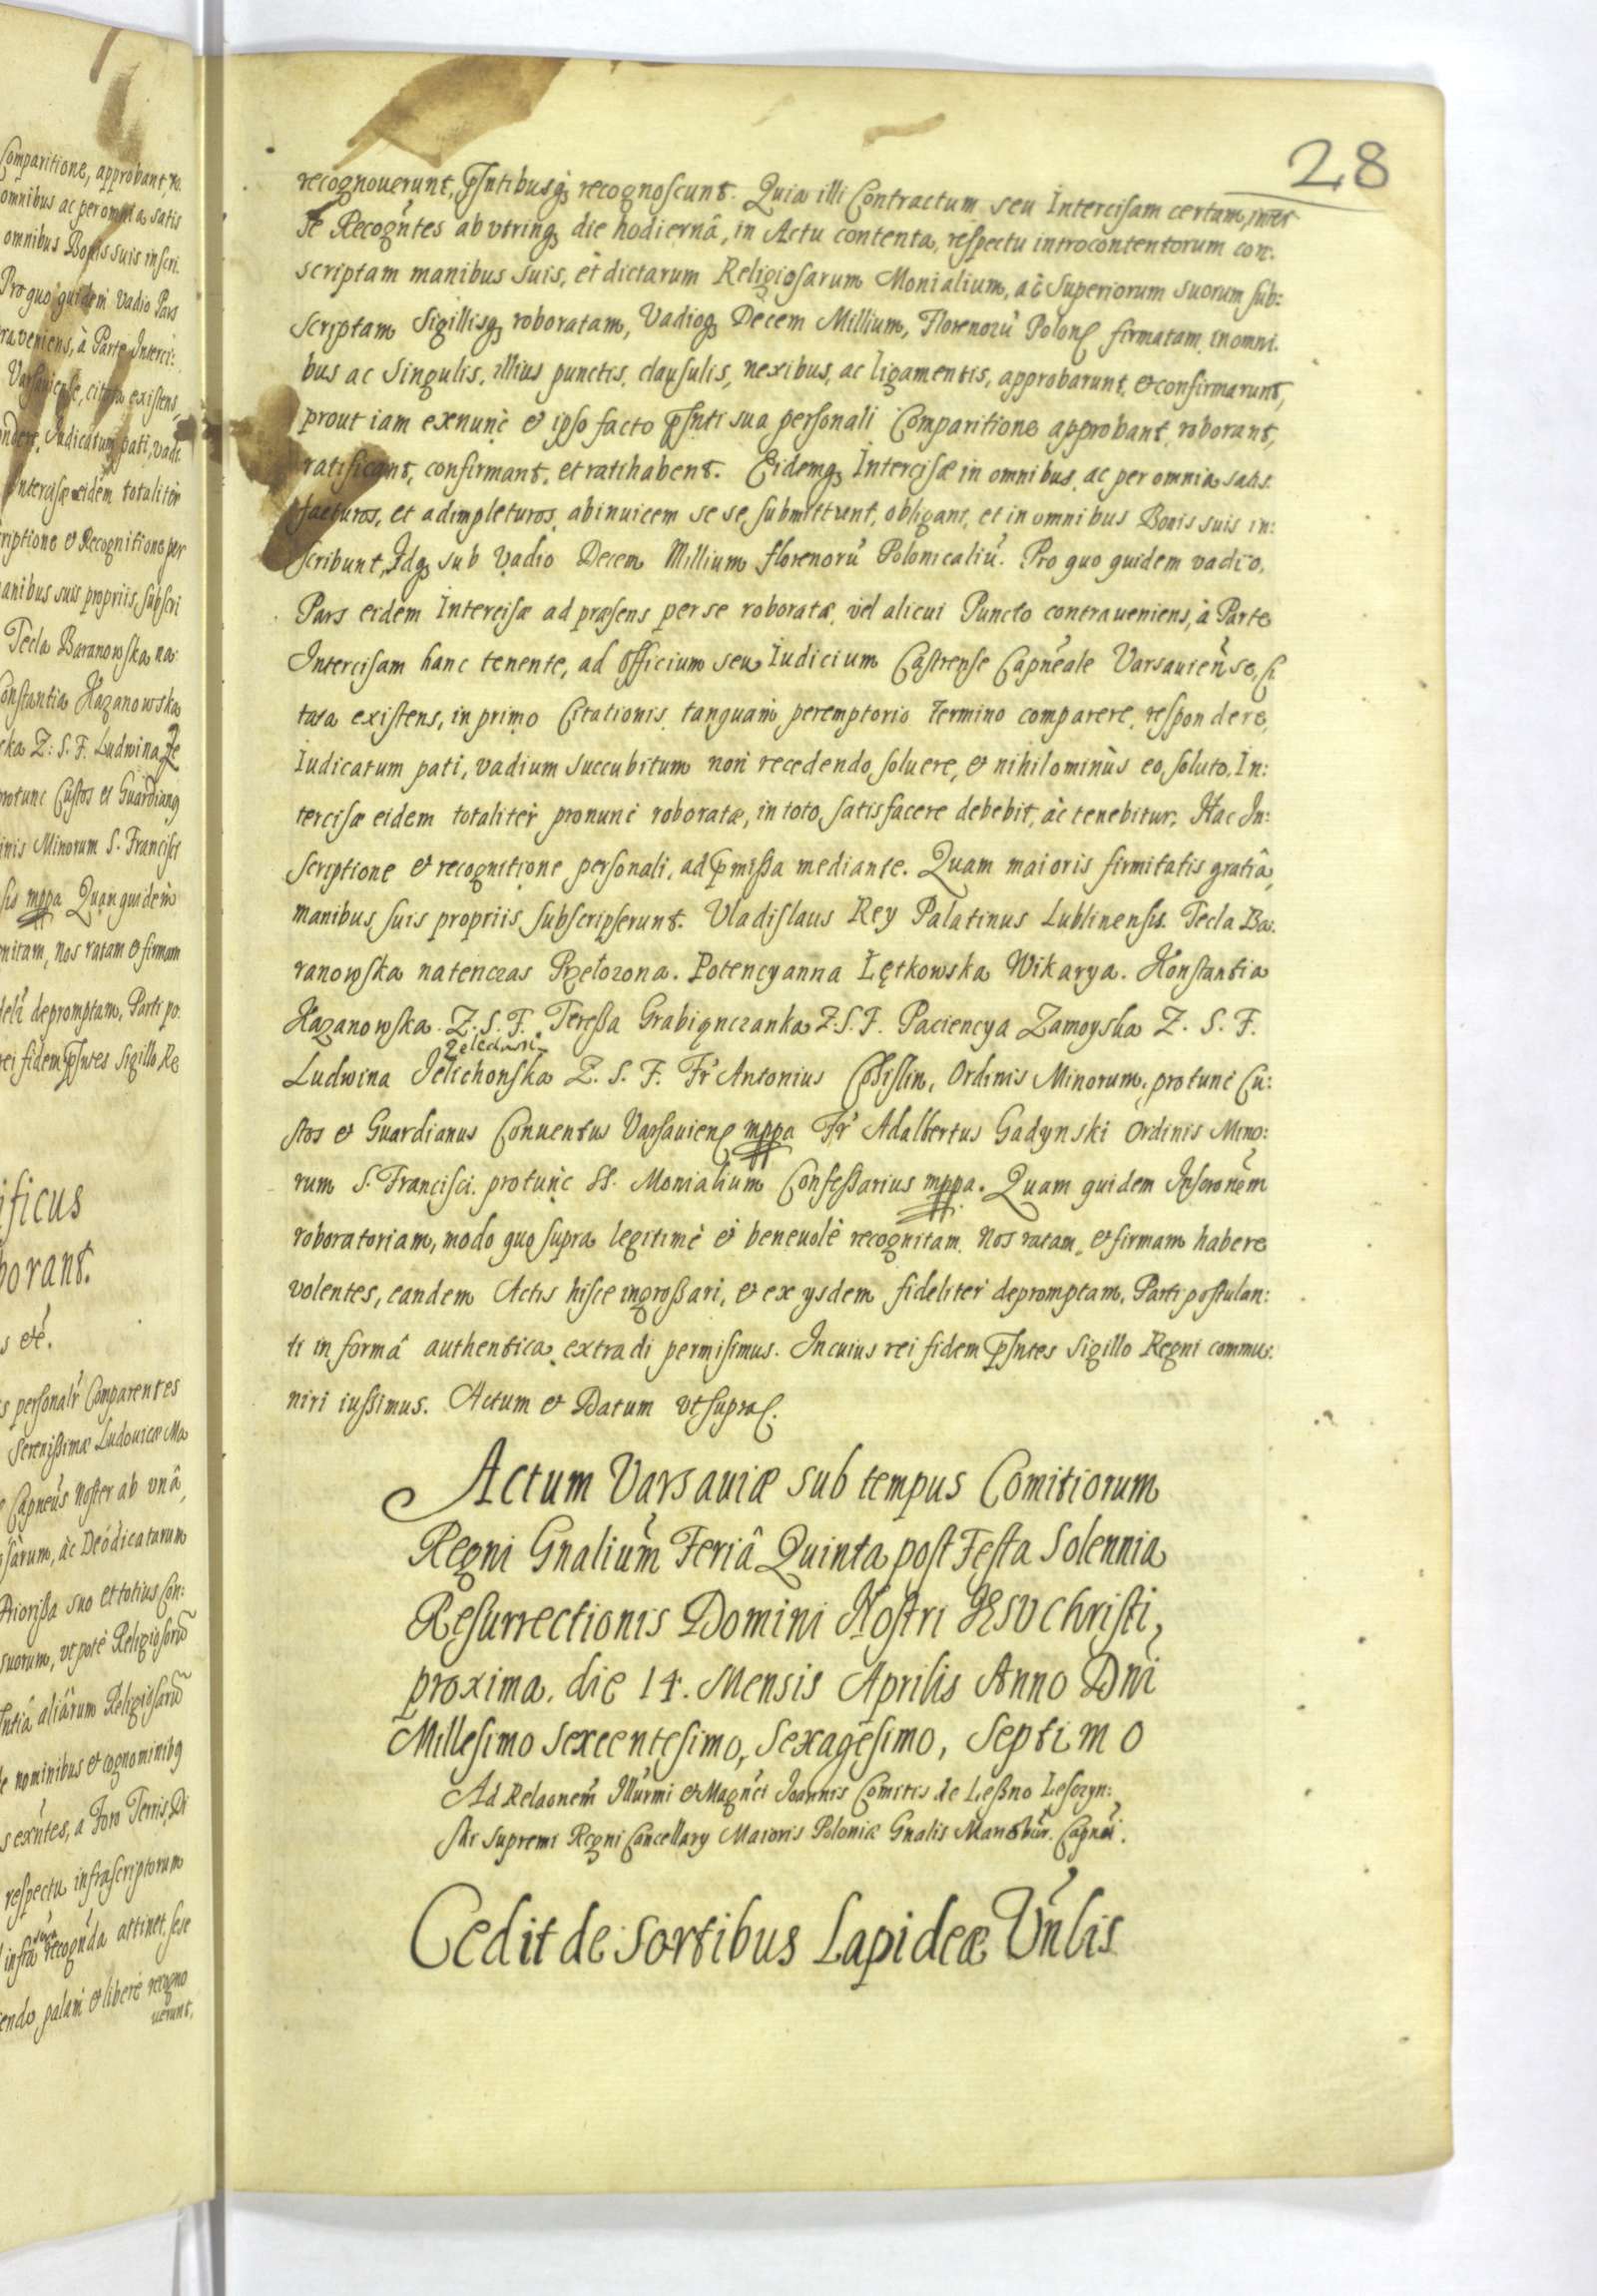 28
recognouerunt, p̃sntibusq; recognoscunt. Quia illi Contractum seu Intercisam certam, inter
se Recogñtes ab vtrinq; die hodiernâ, in Actu contenta, respectu introcontentorum con:
scriptam manibus suis, et dictarum Religiosarum Monialium, ac Superiorum suorum sub:
scriptam Sigillisq; roboratam, Vadioq; Decem Millium, Florenorũ Polon firmatam, in omni.
bus ac Singulis, illius punctis, clausulis, nexibus, ac ligamentis, approbarunt, et confirmarunt,
prout iam exnunc et ipso facto p̃snti sua personali Comparitione approbant, roborant,
ratificant, confirmant, et ratihabent. Eidemq; Intercisæ in omnibus, ac per omnia satis
facturos, et adimpleturos, abinuicem se se submittunt, obligant, et in omnibus Bonis suis in:
scribunt, Idq; sub Vadio Decem Millium florenorũ Polonicaliũ. Pro quo quidem vadio,
Pars eidem Intercisæ ad præsens per se roboratæ, vel alicui Puncto contraueniens, à Parte
Intercisam hanc tenente, ad Officium seu Iudicium Castrense Capñeale Varsauieñse, Ci
tata existens, in primo Citationis, tanquam peremptorio Termino comparere, respondere,
Iudicatum pati, vadium succubitum non recedendo, soluere, et nihilominùs eo, soluto, In:
tercisæ eidem totalitèr pronunc roboratæ, in toto, satisfacere debebit, ac tenebitur, Hac In:
scriptione et recognitione personali, ad p̃missa mediante. Quam maioris firmitatis gratiâ,
manibus suis propriis subscripserunt. Vladislaus Rey Palatinus Lublinensis. Tecla Ba:
ranowska natenczas Przełozona. Potencyanna Łętkowska Wikarya. Konstantia
Kazanowska Z. S. F. Teressa Grabiąnczanka Z. S. F. Paciencya Zamoyska Z. S. F.
Ludwina Jelichonska Z. S. F. Fr Antonius Ordinis Minorum, protunc Cu:
stos et Guardianus Conuentus Varsauien mppa Fr Adalbertus Gadynski Ordinis Mino:
rum S. Francisci. protunc SS. Monialium Confessarius mppa. Quam quidem Inscronẽm
roboratoriam, modo quo supra legitimè et beneuolè recognitam. Nos ratam, et firmam habere
volentes, eandem Actis hisce ingrossari, et ex ysdem fideliter depromptam, Parti postulan:
ti in formâ authentica extradi permisimus. In cuius rei fidem p̃sntes Sigillo Regni commu:
niri iussimus. Actum et Datum vt supra.
Actum Varsauiæ sub tempus Comitiorum
Regni Gnaliũm Feriâ Quinta post Festa Solennia
Resurrectionis Domini Nostri IESV Christi,
proxima, die 14. Mensis Aprilis Anno Dñi
Millesimo Sexcentesimo, Sexagesimo, Septimo
Ad Relaonem Illũrmi et Magñci Joannis Comitis de Leßno Lesczyn:
ski Supremi Regni Cancellarÿ Maioris Poloniæ Gnalis Capnei.
Cedit de Sortibus Lapideæ Vñlis
Comparitione, approbant, ro
omnibus ac per omnia satis
omnibus Bonis suis inscri.
Pro quo quidem Vadio Pars
raveniens, à Parte Interci:
Varsauiense, citata existens,
ondere, Iudicatum pati, vadi
Intercisæ eidem totalitèr
riptione et Recognitione per
anibus suis propriis, subscri
Tecla Baranowska na
Constantia Kazanowska
ska Z: S. F. Ludwina Je
protunc Custos et Guardiang
inis Minorum S. Francisci
sis mppa Quam quidem
nitam, nos ratam et firmam
deli depromptam, Parti po:
rei fidem p̃sntes Sigillo Re
ificus
orant.
s etc.
s personalr Comparentes
Serenissimæ Ludouicæ Ma
Capneus Noster ab vnâ,
sarum, ac Deodicatarum
Priorissa suo et totius Con:
suorum, vt potè Religiosorũ
ntiâ aliârum Religiosarũ
e nominibus et cognominibq
s exñtes, a Foro Terris, Di
respectu infrascriptorum
infra recognda attinet, sese
endo palam et liberè recogno
uerunt,